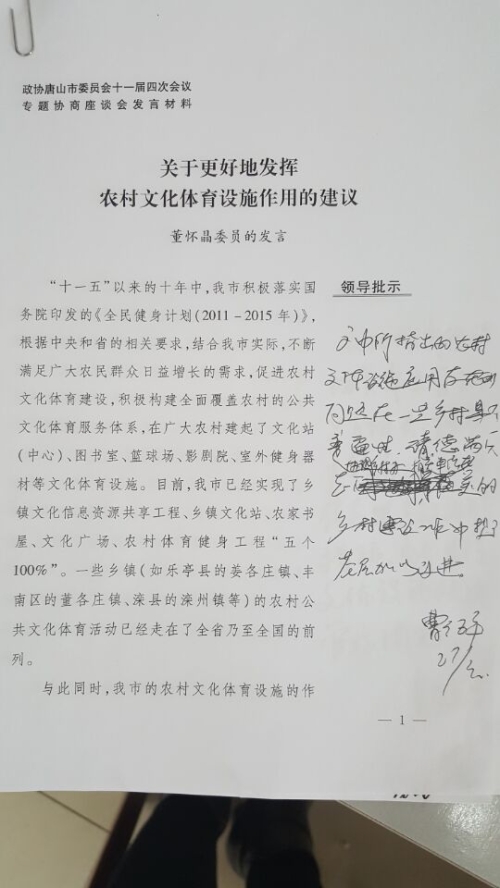 政协唐山市委员会十一届四次会议
专题协商座谈会发言材料
关于更好地发挥
农村文化体育设施作用的建议
董怀晶委员的发言
“十一五”以来的十年中,我市积极落实国
务院印发的《全民健身计划(2011-2015年)》,
根据中央和省的相关要求,结合我市实际,不断
满足广大农民群众日益增长的需求,促进农村
文化体育建设,积极构建全面覆盖农村的公共
文化体育服务体系,在广大农村建起了文化站
(中心)、图书室、篮球场、影剧院、室外健身器
材等文化体育设施。目前,我市已经实现了乡
镇文化信息资源共享工程、乡镇文化站、农家书
屋、文化广场、农村体育健身工程“五个
100%”。一些乡镇(如乐亭县的姜各庄镇、丰
南区的董各庄镇、滦县的滦州镇等)的农村公
共文化体育活动已经走在了全省乃至全国的前
列。
与此同时,我市的农村文化体育设施的作
领导批示
文中所指出的农村
在一些乡村具有
普遍性
乡村
加以改进。
27/
— 1 —